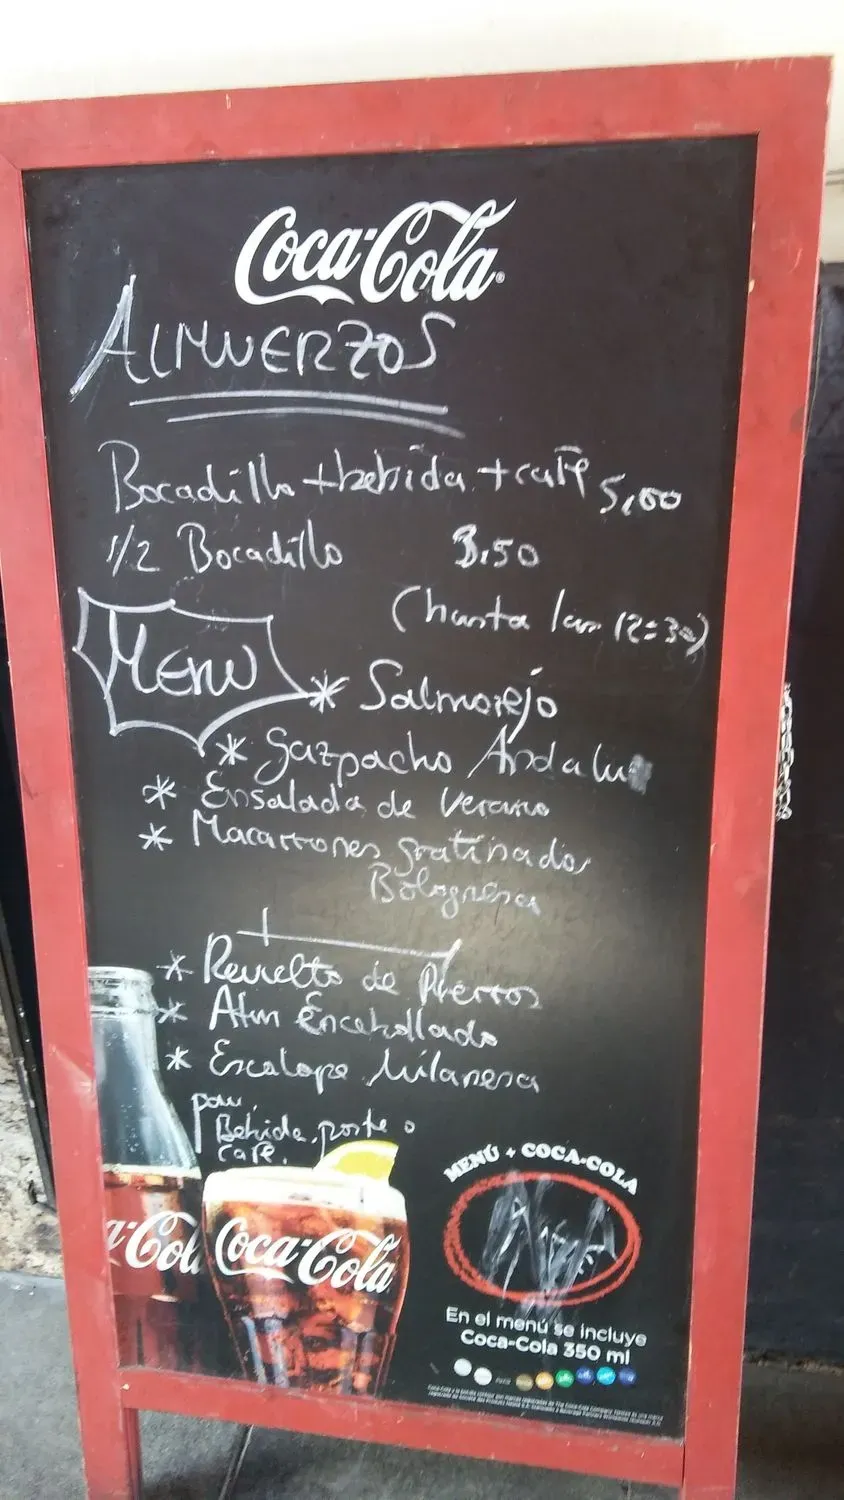 Coca-Cola
ALMUERZOS
Bocadillo + bebida + café 5,00
1/2 Bocadillo 3,50
(hasta las 12:30)
MENU
* Salmorejo
* Gazpacho Andaluz
* Ensalada de Verano
* Macarrones gratinados
Bolognesa
* Revuelto de
* Atun Encebollado
* Escalope Milanesa
pan,
Bebida, postre o
café.
Coca-Cola
Coca-Cola
MENÚ + COCA-COLA
En el menú se incluye
Coca-Cola 350 ml